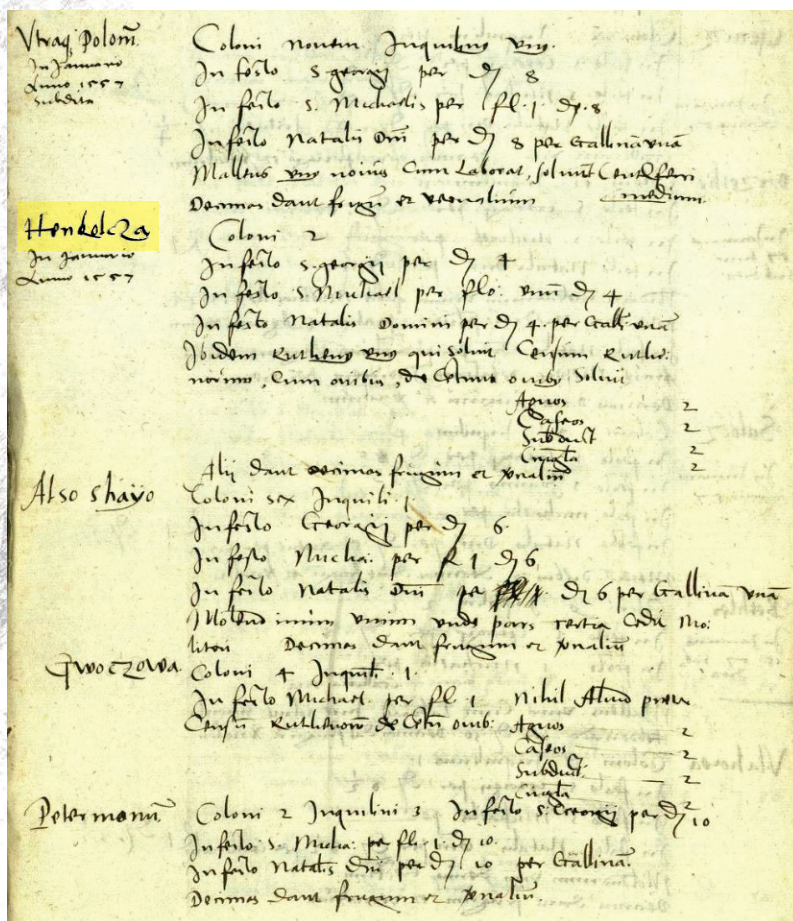 Utraq Polom
In Januario
Anno 1557
subdita
Coloni novem Inquilinus unus
In festo S. georgij per d 8
In festo S. Michaelis per fl. 1. d. 8
In festo Natalis Dni per d 8 per Gallina una
Malleus unus novus cum Laborat, solvit ferri
medium
Decimas dant frugum et vernalium
Henkelcza
In Januario
Anno 1557
Coloni 2
In festo S. georgij per d 4
In festo S. Michael per flo: unu d 4
In festo Natalis Domini per d 4. per Gall: una
Ibidem Ruthenus unus qui solvit Censum Ruthe:
norum, cum ovibus, de ovibus
Agnos 2
Caseos 2
Subduct 2
Cingla 2
Alij dant decimas frugum et vernalium
Also shayo
Coloni sex Inquili. 1
In festo Georgij per d 6
In festo Micha: per fl 1 d 6
In festo Natalis Dni per d 6 per Gallina una
Molendinum unum unde pars tertia Cedit Mo:
litori Decimas dant frugum et vernaliu
Gwoczowa
Coloni 4 Inquili. 1.
In festo Michael. per fl. 1 Nihil Aliud preter
Censu Ruthenoru de ovib:
Agnos 2
Caseos 2
Subduct: 2
Cingla 2
Petermanni
Coloni 2 Inquilini 3 In festo S. Georgij per d 10
In festo S. Micha: per fl. 1. d 10.
In festo Natalis dni per d 10 per Gallina.
Decimas dant frugum et vernaliu.